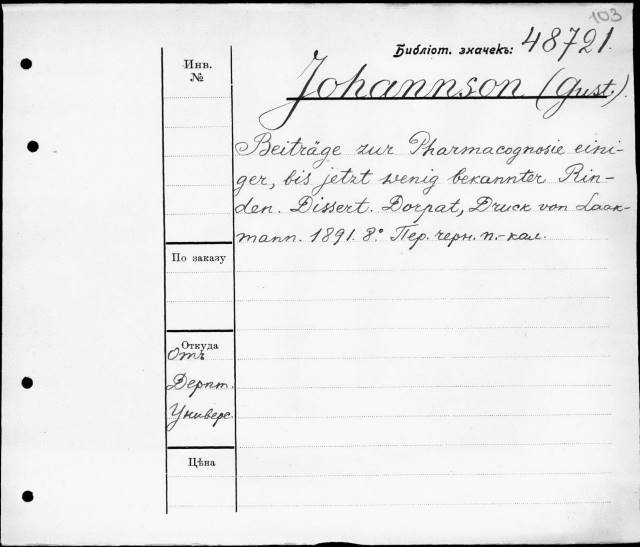 103
Библіот. значекъ: 48721.
Инв.
№
Johannson (Gust.)
Beiträge zur Pharmacognosie eini-
ger, bis jetzt wenig bekannter Rin-
den. Dissert. Dorpat, Druck von Laak-
mann. 1891. 8° Пер. черн. п.-кал.
По заказу
Откуда
Отъ
Дерпт.
Универс.
Цѣна